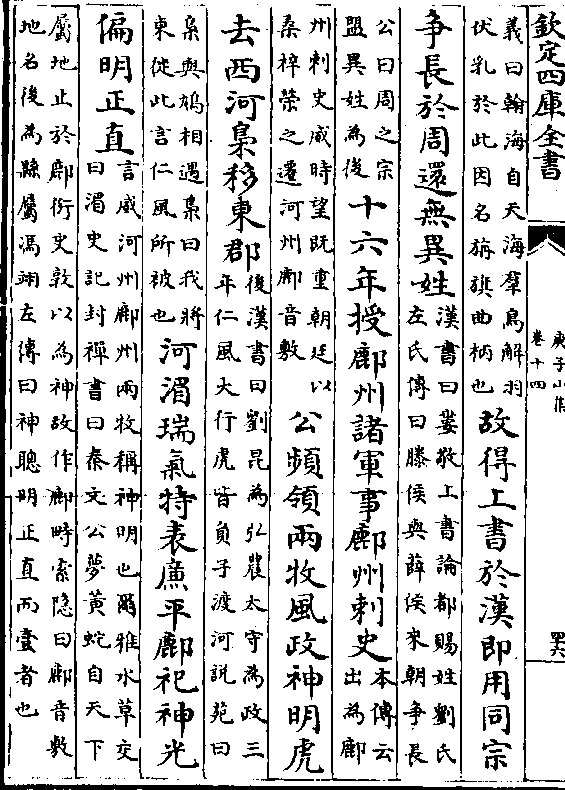 欽定四庫全書
庾子山集
卷十四
四十六
義曰翰海自天海羣鳥解羽
伏乳於此因名旃旗曲柄也
故得上書於漢即用同宗
爭長於周還無異姓
漢書曰婁敬上書論都賜姓劉氏
左氏傳曰滕侯與薛侯來朝爭長
公曰周之宗
盟異姓為後
十六年授鄜州諸軍事鄜州刺史
本傳云
出為鄜
州刺史威時望既重朝廷以
桑梓榮之遷河州鄜音敷
公頻領兩牧風政神明虎
去西河梟移東郡
後漢書曰劉昆為弘農太守為政三
年仁風大行虎皆負子渡河説苑曰
梟與鳩相遇梟曰我將
東徙此言仁風所被也
河湄瑞氣特表廉平鄜祀神光
偏明正直
言威河州鄜州兩牧稱神明也爾雅水草交
曰湄史記封禪書曰秦文公夢黄蛇自天下
屬地止於鄜衍史敦以為神故作鄜畤索隱曰鄜音敷
地名後為縣屬馮翊左傳曰神聰明正直而壹者也